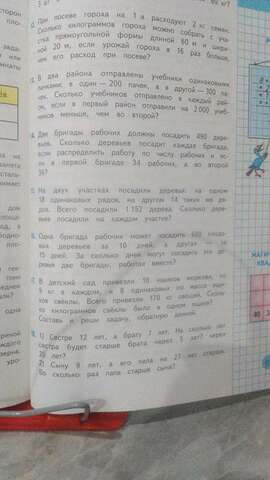 При посеве гороха на 1 а расходуют 2 кг семян.
Сколько килограммов гороха можно собрать с уча-
стка прямоугольной формы длиной 60 м и шири-
ной 20 м, если урожай гороха в 16 раз больше,
чем его расход при посеве?
В два района отправлено учебники одинаковыми
пачками: в один — 200 пачек, а в другой — 300 па-
чек. Сколько учебников отправлено в каждый рай-
он, если в первый район отправили на 2 000 учеб-
ников меньше, чем во второй?
Две бригады рабочих должны посадить 490 дере-
вьев. Сколько деревьев посадит каждая бригада,
если распределить работу по числу рабочих и ес-
ли в первой бригаде 34 рабочих, а во второй
36?
На двух участках посадили деревья: на одном
18 одинаковых рядов, на другом 14 таких же ря-
дов. Всего посадили 1 152 дерева. Сколько дере-
вьев посадили на каждом участке?
Одна бригада рабочих может посадить 600
деревьев за 10 дней, а другая — за
15 дней. За сколько дней могут посадить эти де-
ревья две бригады, работая вместе?
В детский сад привезли 10 ящиков моркови, по
5 кг в каждом, и 8 одинаковых по массе ящи-
ков свёклы. Всего привезли 170 кг овощей. Сколь-
ко килограммов свёклы было в одном ящике?
Составь и реши задачу, обратную данной.
1) Сестре 12 лет, а брату 7 лет. На сколько лет
сестра будет старше брата через 5 лет? через
20 лет?
2) Сыну 9 лет, а его папа на 27 лет старше.
Во сколько раз папа старше сына?